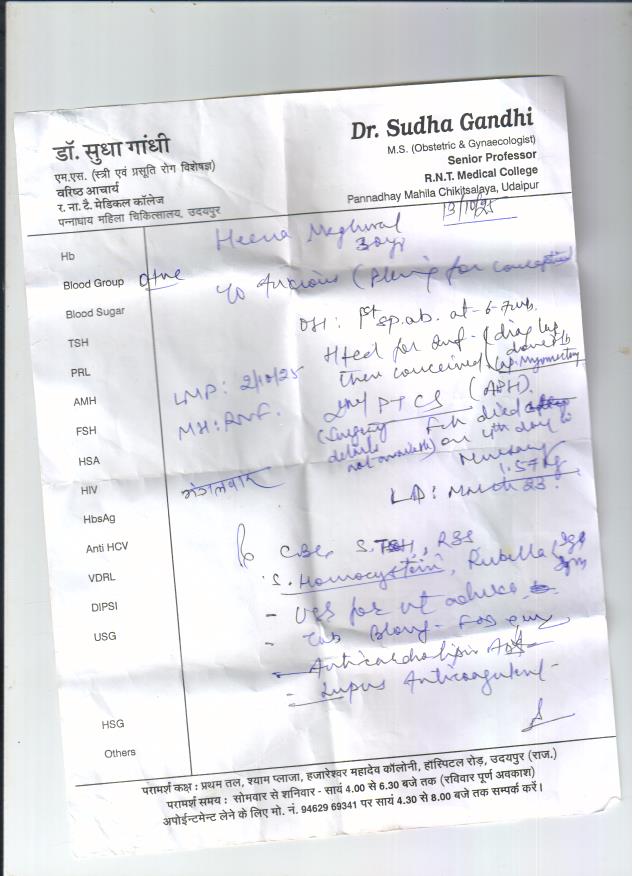 डॉ. सुधा गांधी
एम.एस. (स्त्री एवं प्रसूति रोग विशेषज्ञ)
वरिष्ठ आचार्य
र. ना. टै. मेडिकल कॉलेज
पन्नाधाय महिला चिकित्सालय, उदयपुर
Dr. Sudha Gandhi
M.S. (Obstetric & Gynaecologist)
Senior Professor
R.N.T. Medical College
Pannadhay Mahila Chikitsalaya, Udaipur
13/10/25
Heena Meghwal
30yr
Hb
Blood Group O+ve
Blood Sugar
TSH
PRL
AMH
FSH
HSA
HIV
HbsAg
Anti HCV
VDRL
DIPSI
USG
HSG
Others
for conception
OH: 1st sp. ab. at 6-7wk.
for (diag lap
then conceived Lap. Myomectomy
LMP: 2/10/25
PTCS (APH).
MH:
(Surgery died
details
not available) on 4th day in
Nursery
1.57kg
मंगलवार
LD: March 23.
CBC, S.TSH, RBS
S. Homocystein, Rubella IgG
IgM
- USG for ut
- Tab
- Anticardiolipin
- Lupus Anticoagulant -
परामर्श कक्ष : प्रथम तल, श्याम प्लाजा, हजारेश्वर महादेव कॉलोनी, हॉस्पिटल रोड़, उदयपुर (राज.)
परामर्श समय : सोमवार से शनिवार - सायं 4.00 से 6.30 बजे तक (रविवार पूर्ण अवकाश)
अपोईन्टमेन्ट लेने के लिए मो. नं. 94629 69341 पर सायं 4.30 से 8.00 बजे तक सम्पर्क करें।